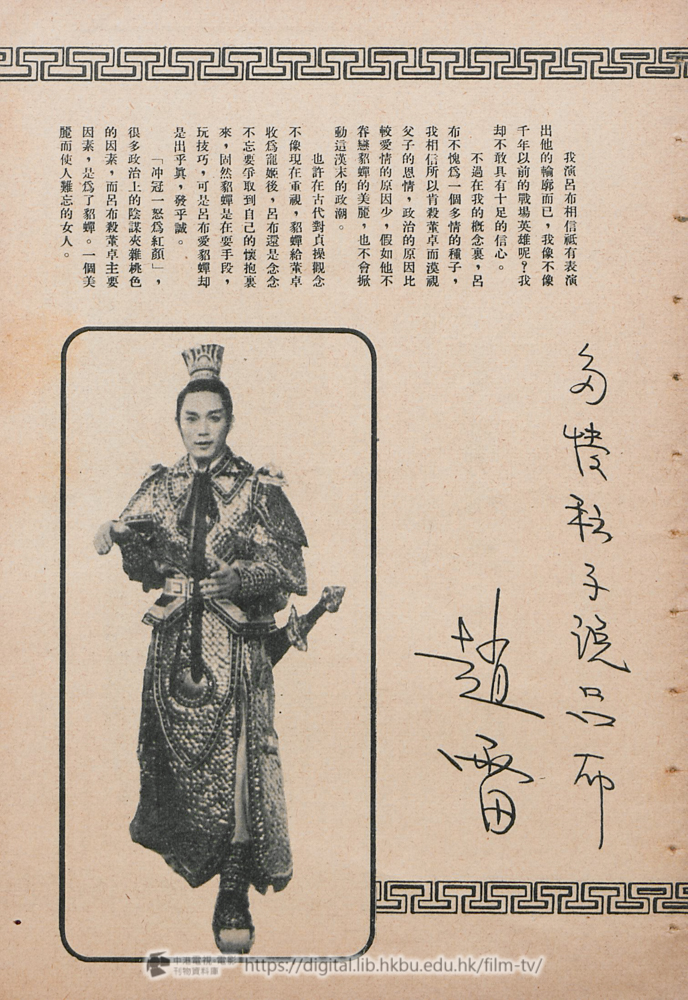 多情種子說呂布
趙雷
我演呂布相信祗有表演
出他的輪廓而已，我像不像
千年以前的戰場英雄呢？我
却不敢具有十足的信心。
不過在我的概念裏，呂
布不愧爲一個多情的種子，
我相信所以肯殺董卓而漠視
父子的恩情，政治的原因比
較愛情的原因少，假如他不
眷戀貂蟬的美麗，也不會掀
動這漢末的政潮。
也許在古代對貞操觀念
不像現在重視，貂蟬給董卓
收爲寵姬後，呂布還是念念
不忘要爭取到自己的懷抱裏
來，固然貂蟬是在耍手段，
玩技巧，可是呂布愛貂蟬却
是出乎眞，發乎誠。
「冲冠一怒爲紅顏」，
很多政治上的陰謀夾雜桃色
的因素，而呂布殺董卓主要
因素，是爲了貂蟬。一個美
麗而使人難忘的女人。
中港電視·電影
刊物資料庫
https://digital.lib.hkbu.edu.hk/film-tv/